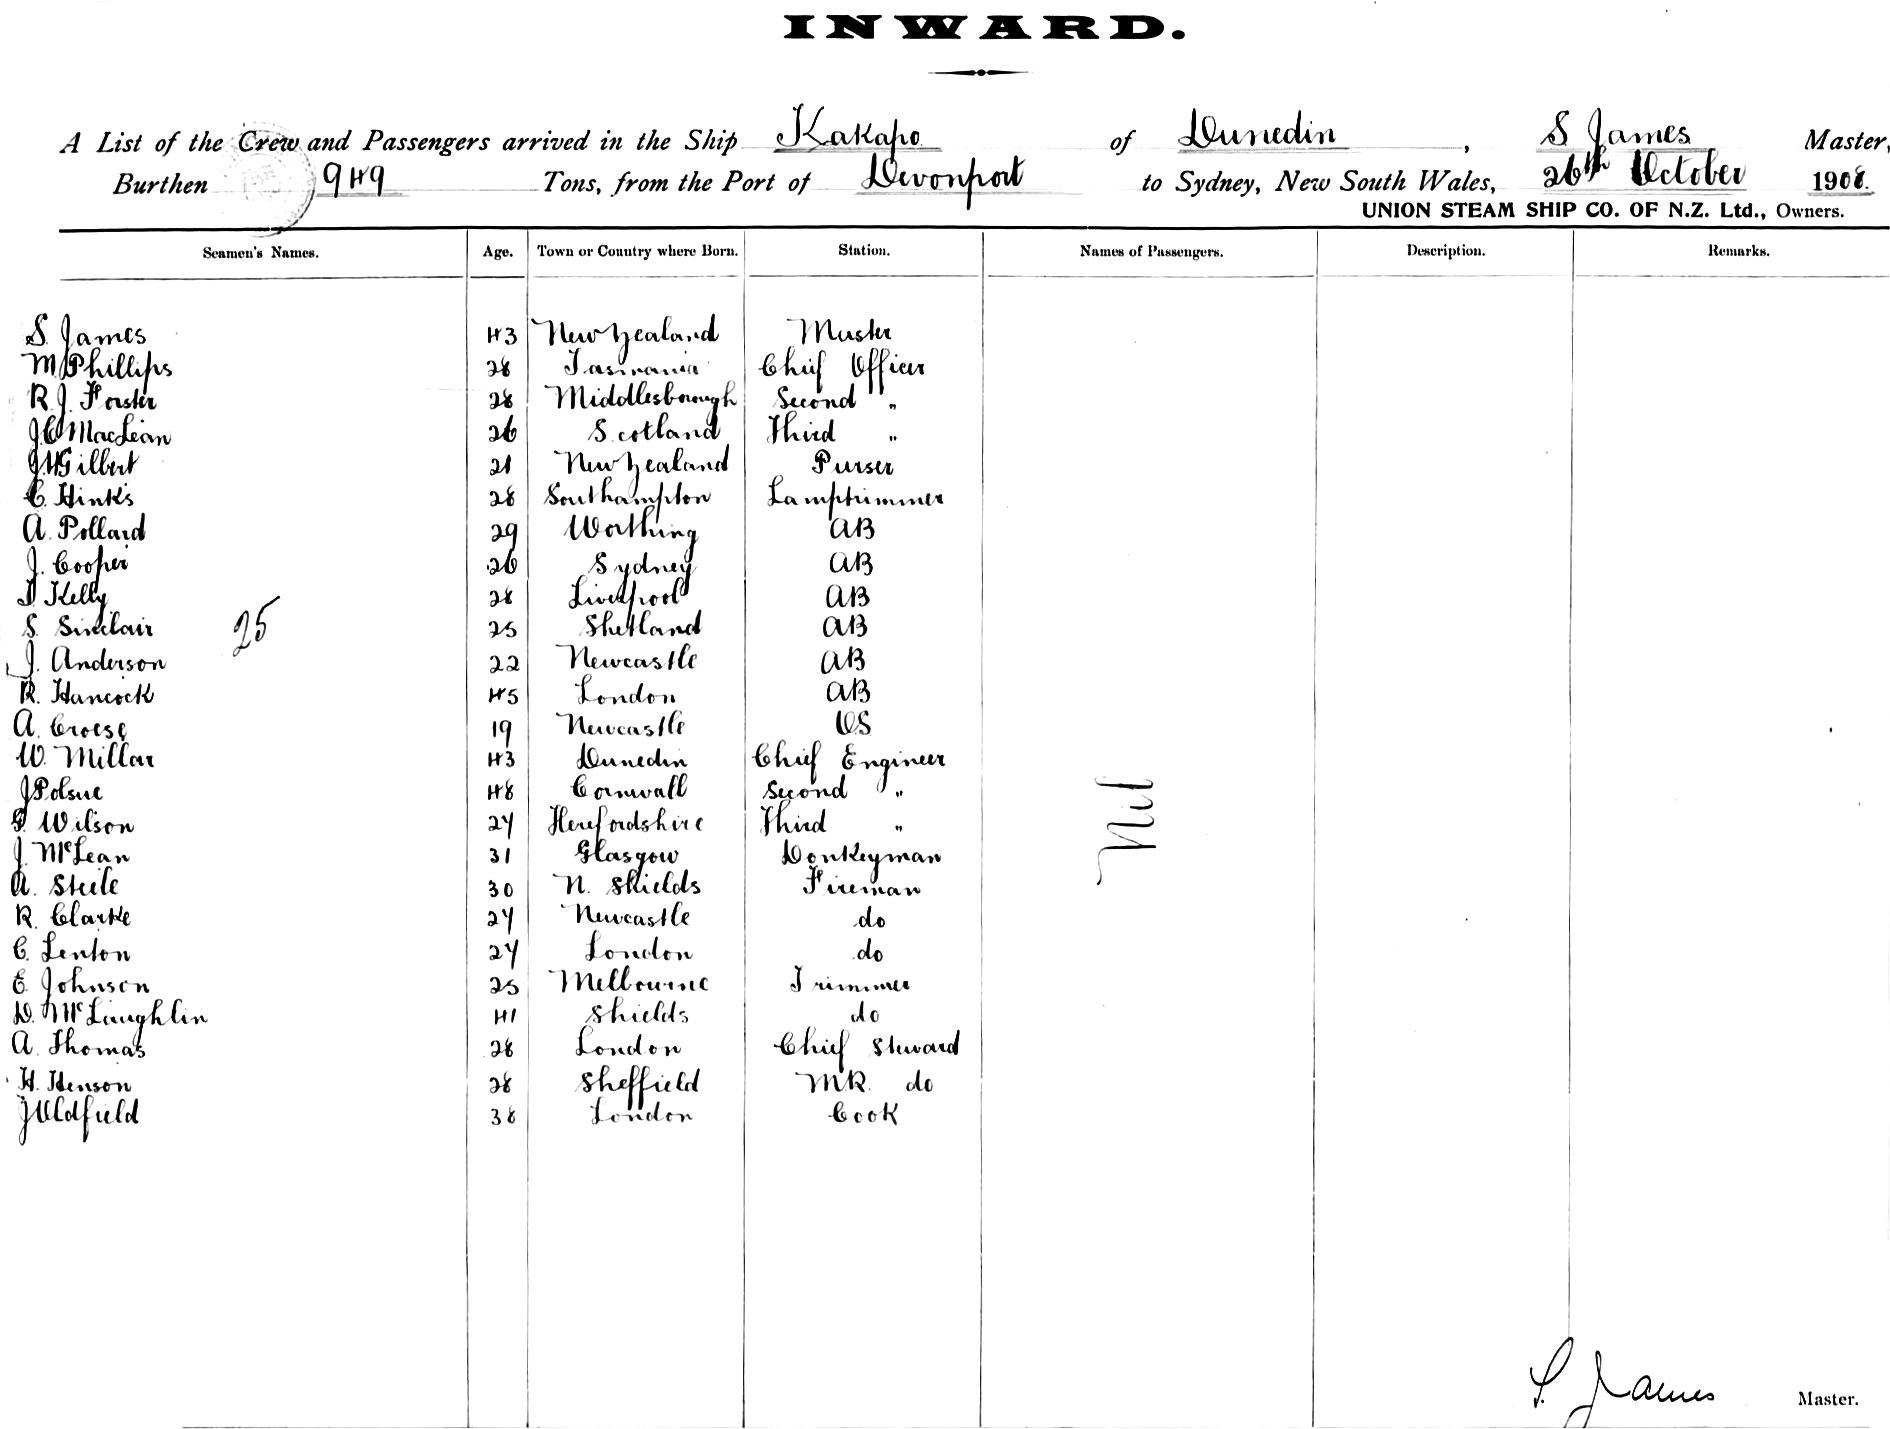 INWARD.
A List of the Crew and Passengers arrived in the Ship Kakapo of Dunedin, S James Master,
Burthen 949 Tons, from the Port of Devonport to Sydney, New South Wales, 26th October 1908.
UNION STEAM SHIP CO. OF N.Z. Ltd., Owners.
Seamen's Names. Age. Town or Country where Born. Station. Names of Passengers. Description. Remarks.
S. James 43 New Zealand Master
M Phillips 28 Tasmania Chief Officer
R. J. Forster 28 Middlesborough Second "
J C MacLean 26 Scotland Third "
J H Gilbert 21 New Zealand Purser
C. Hinks 28 Southampton Lamptrimmer
A. Pollard 29 Worthing AB
J. Cooper 26 Sydney AB
Kelly 28 Liverpool AB
S. Sinclair 25 Shetland AB
25
J. Anderson 22 Newcastle AB
R. Hancock 45 London AB
A. Croese 19 Newcastle OS
W. Millar 43 Dunedin Chief Engineer
J Polsue 48 Cornwall Second "
G. Wilson 24 Herefordshire Third "
J. McLean 31 Glasgow Donkeyman
Nil
A. Steele 30 N. Shields Fireman
R. Clarke 24 Newcastle do
C. Lenton 24 London do
E. Johnson 25 Melbourne Trimmer
D. McLaughlin 41 Shields do
A. Thomas 28 London Chief Steward
H. Henson 28 Sheffield M.R. do
J Oldfield 38 London Cook
S. James Master.